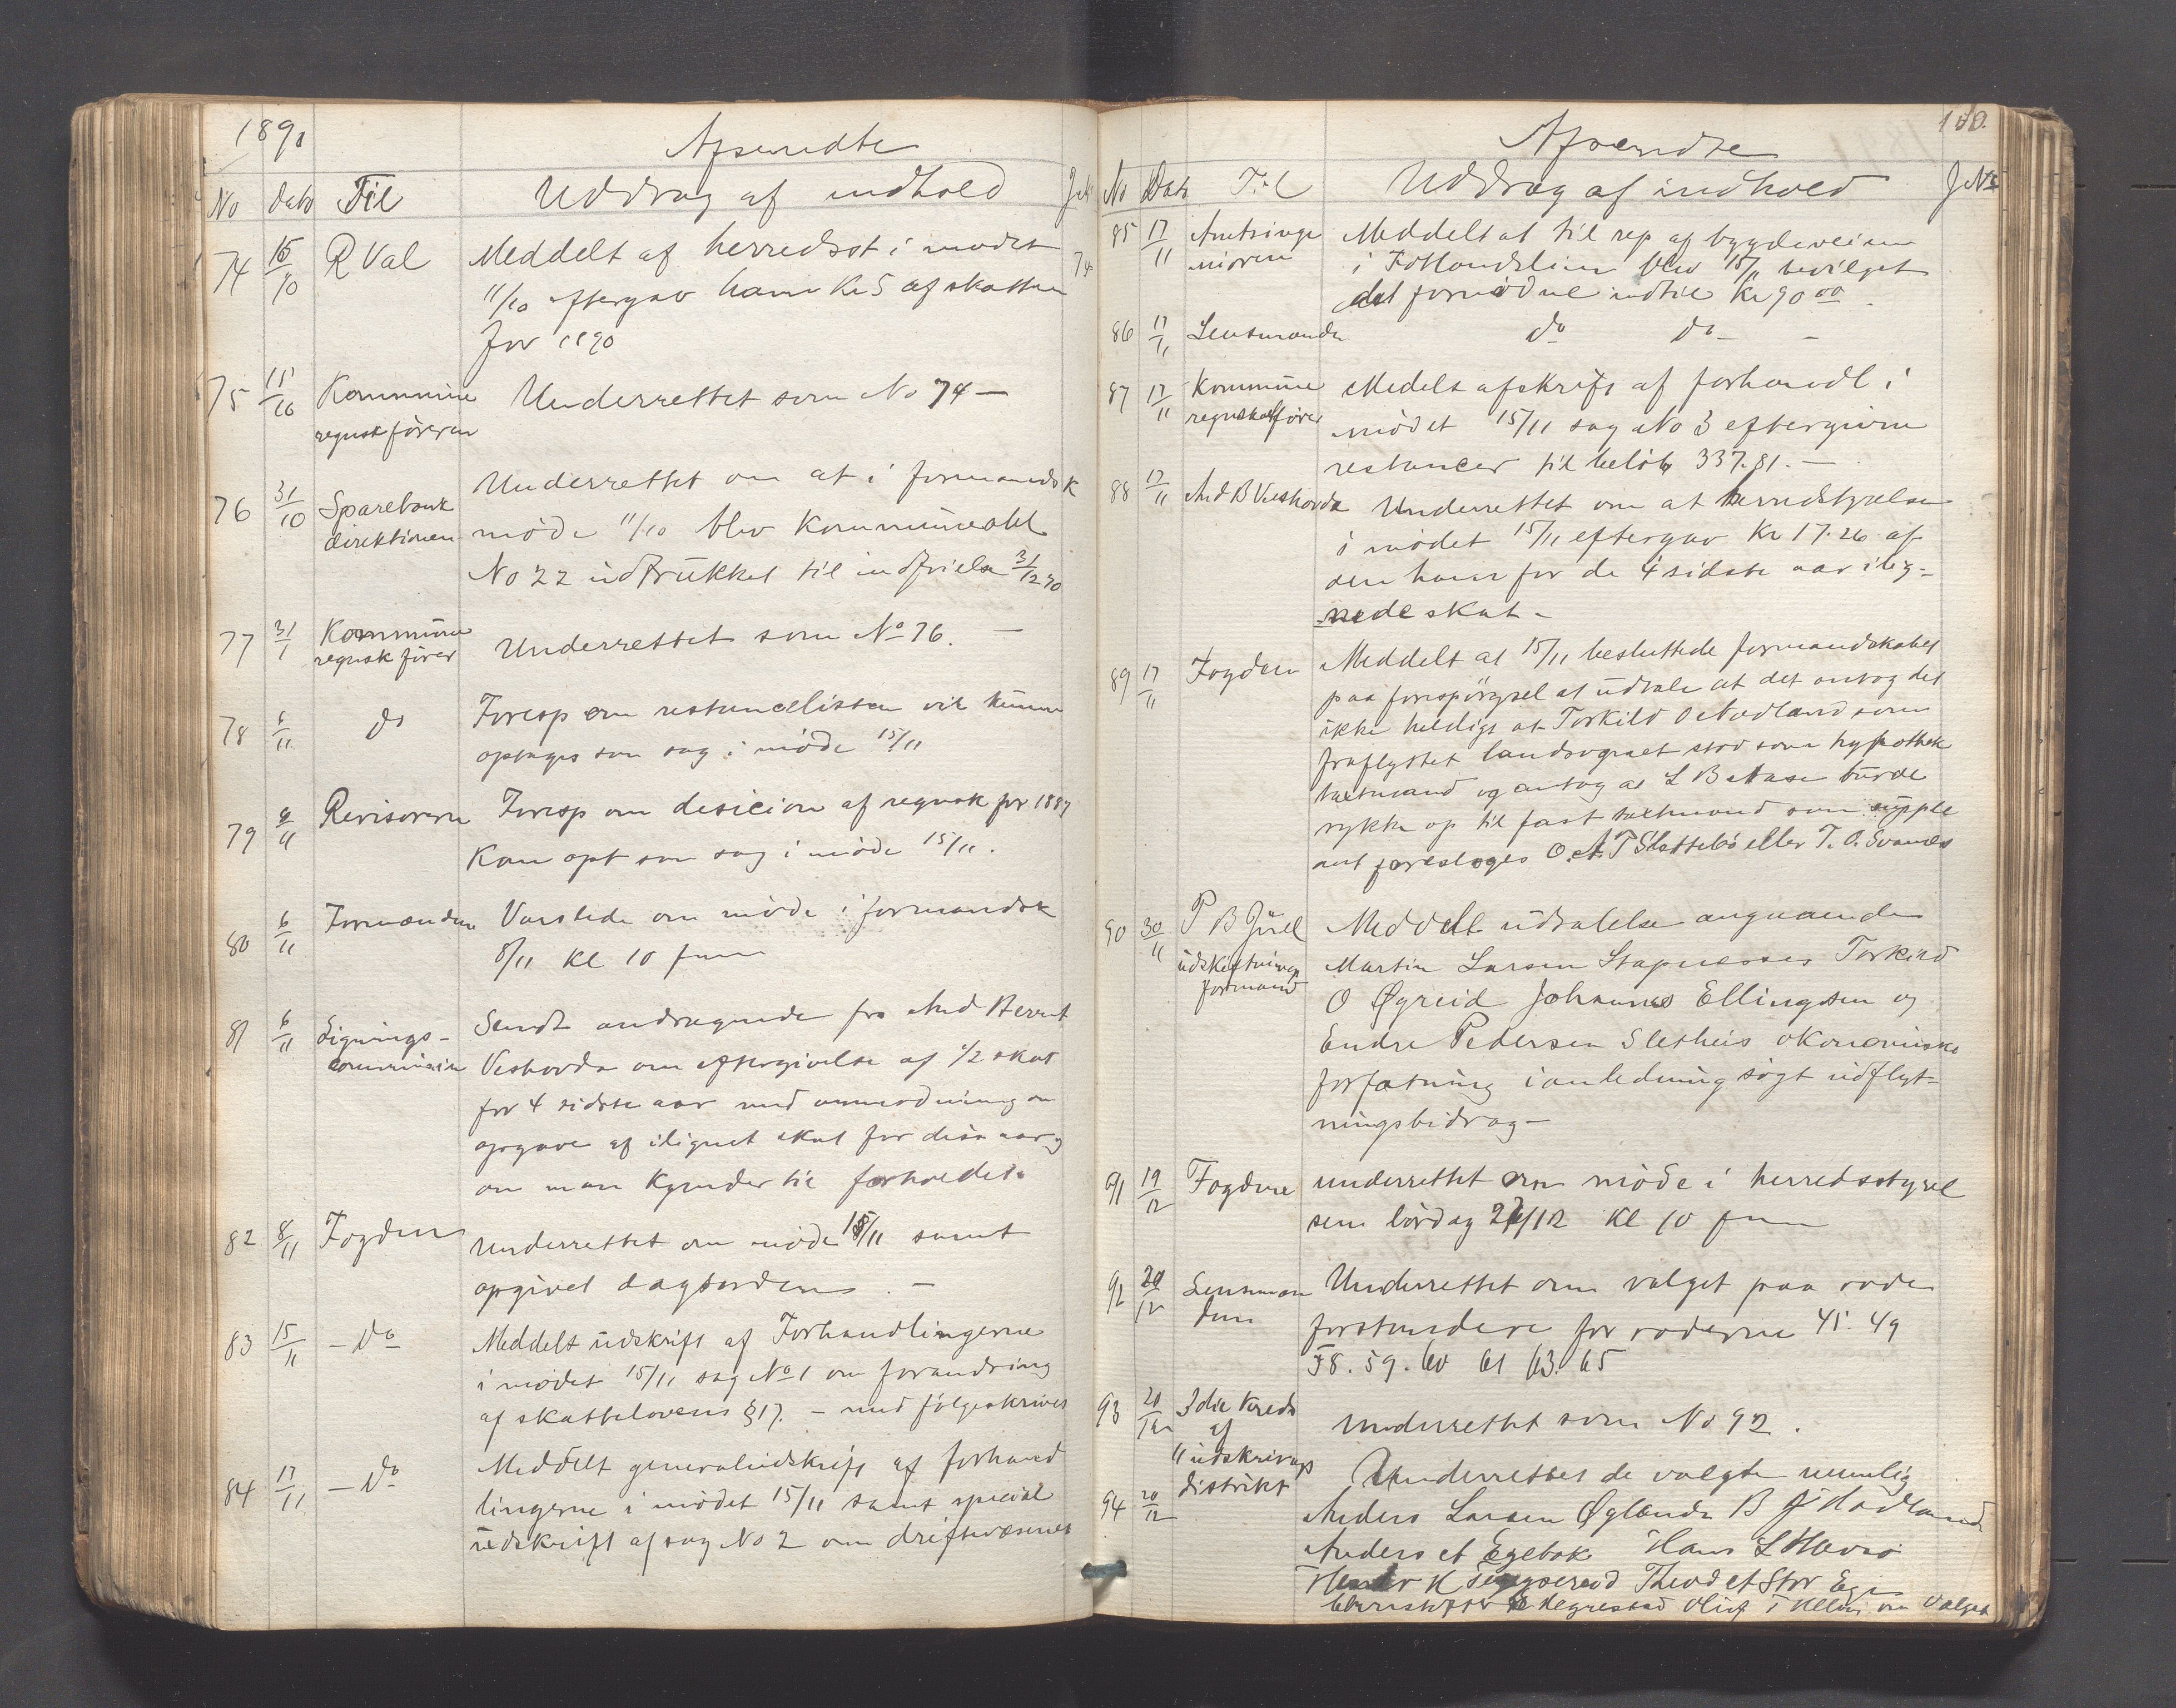 1891
Afsendte
No Dato Til Uddrag af indhold JN
74 15/10 R Val Meddelt af herredsst i mødet 74
11/10 eftergav ham Kr 5 af skatten
for 1890
75 15/10 Kommune Underrettet som No 74 –
regnskføreren
76 31/10 Sparebank Underrettet om at i formandsk
direktionen møde 11/10 blev Kommuneobl
No 22 udtrukket til indfrielse 31/12 90
77 31/1 Kommune Underrettet som No 76. –
regnskfører
78 6/11 do Foresp om restancelisten vil kunne
optages som sag i møde 15/11
79 6/11 Revisoren Foresp om desicion af regnsk for 1889
Kan opt som sag i møde 15/11.
80 6/11 Formænden Varslede om møde i formandsk
8/11 Kl 10 fm
81 6/11 Lignings- Sendt andragende fra And Bernt
commission Veshovda om eftergivelse af 1/2 skat
for 4 sidste aar med anmodning om
opgave af ilignet skat for disse aar og
om man kjender til forholdet.
82 8/11 Fogden Underrettet om møde 15/11 samt
opgivet dagsorden. –
83 15/11 – Do Meddelt udskrift af Forhandlingerne
i mødet 15/11 sag No 1 om forandring
af skattelovens § 17. – med følgeskrivel
84 17/11 – Do Meddelt generaludskrift af forhand
lingerne i mødet 15/11 samt special
udskrift af sag No 2 om driftvæsenet
100.
Afsendte
No Dato Til Uddrag af indhold JNo
85 17/11 Amtsinge Meddelt at til rep af bygdeveien
niøren i Fotlandslien blev 15/11 bevilget
det fornødne indtil Kr 90 00.
86 17/11 Lensmanden do do –
87 17/11 Kommune Medelt afskrift af forhandl i
regnskabsfører mødet 15/11 sag No 3 eftergivne
restancer til beløb 337.81. –
88 17/11 And B Veshovda Underrettet om at herredstyrelsen
i mødet 15/11 eftergav Kr 17.26 af
den ham for de 4 sidste aar ilig-
nede skat –
89 17/11 Fogden Meddelt at 15/11 besluttede formandskabet
paa forespørgsel at udtale at det antog det
ikke heldigt at Torkild O Nodland som
fraflyttet landsognet stod som hypothek
taxtmand og antog at L B Aase burde
rykke op til fast taxtmand som supple
ant foresloges O. A. T Slettebø eller T. O. Svanes
90 30/11 P B Juel Meddelt udtalelse angaaende
udskiftnings Martin Larsen Stapnesses Torkild
formand O Øgreid Johannes Ellingsen og
Endre Pedersen Sletheis økonomiske
forfatning i anledning søgt udflyt-
ningsbidrag –
91 19/12 Fogden underrettet om møde i herredsstyrel
sen lørdag 27/12 Kl 10 fm
92 20/12 Lensman Underrettet om valget paa rode
den forstandere for roderne 45. 49
58. 59. 60 61 63. 65
93 20/12 3die Kreds Underrettet som No 92.
af
11 udskrivngs
distrikt
94 20/12 Underrettet de valgte nemlig
Anders Larsen Øglænd B J Hadland
Anders A Egebak Hans L
K Theod A Stor Ege
Hegrestad Oluf T om valget